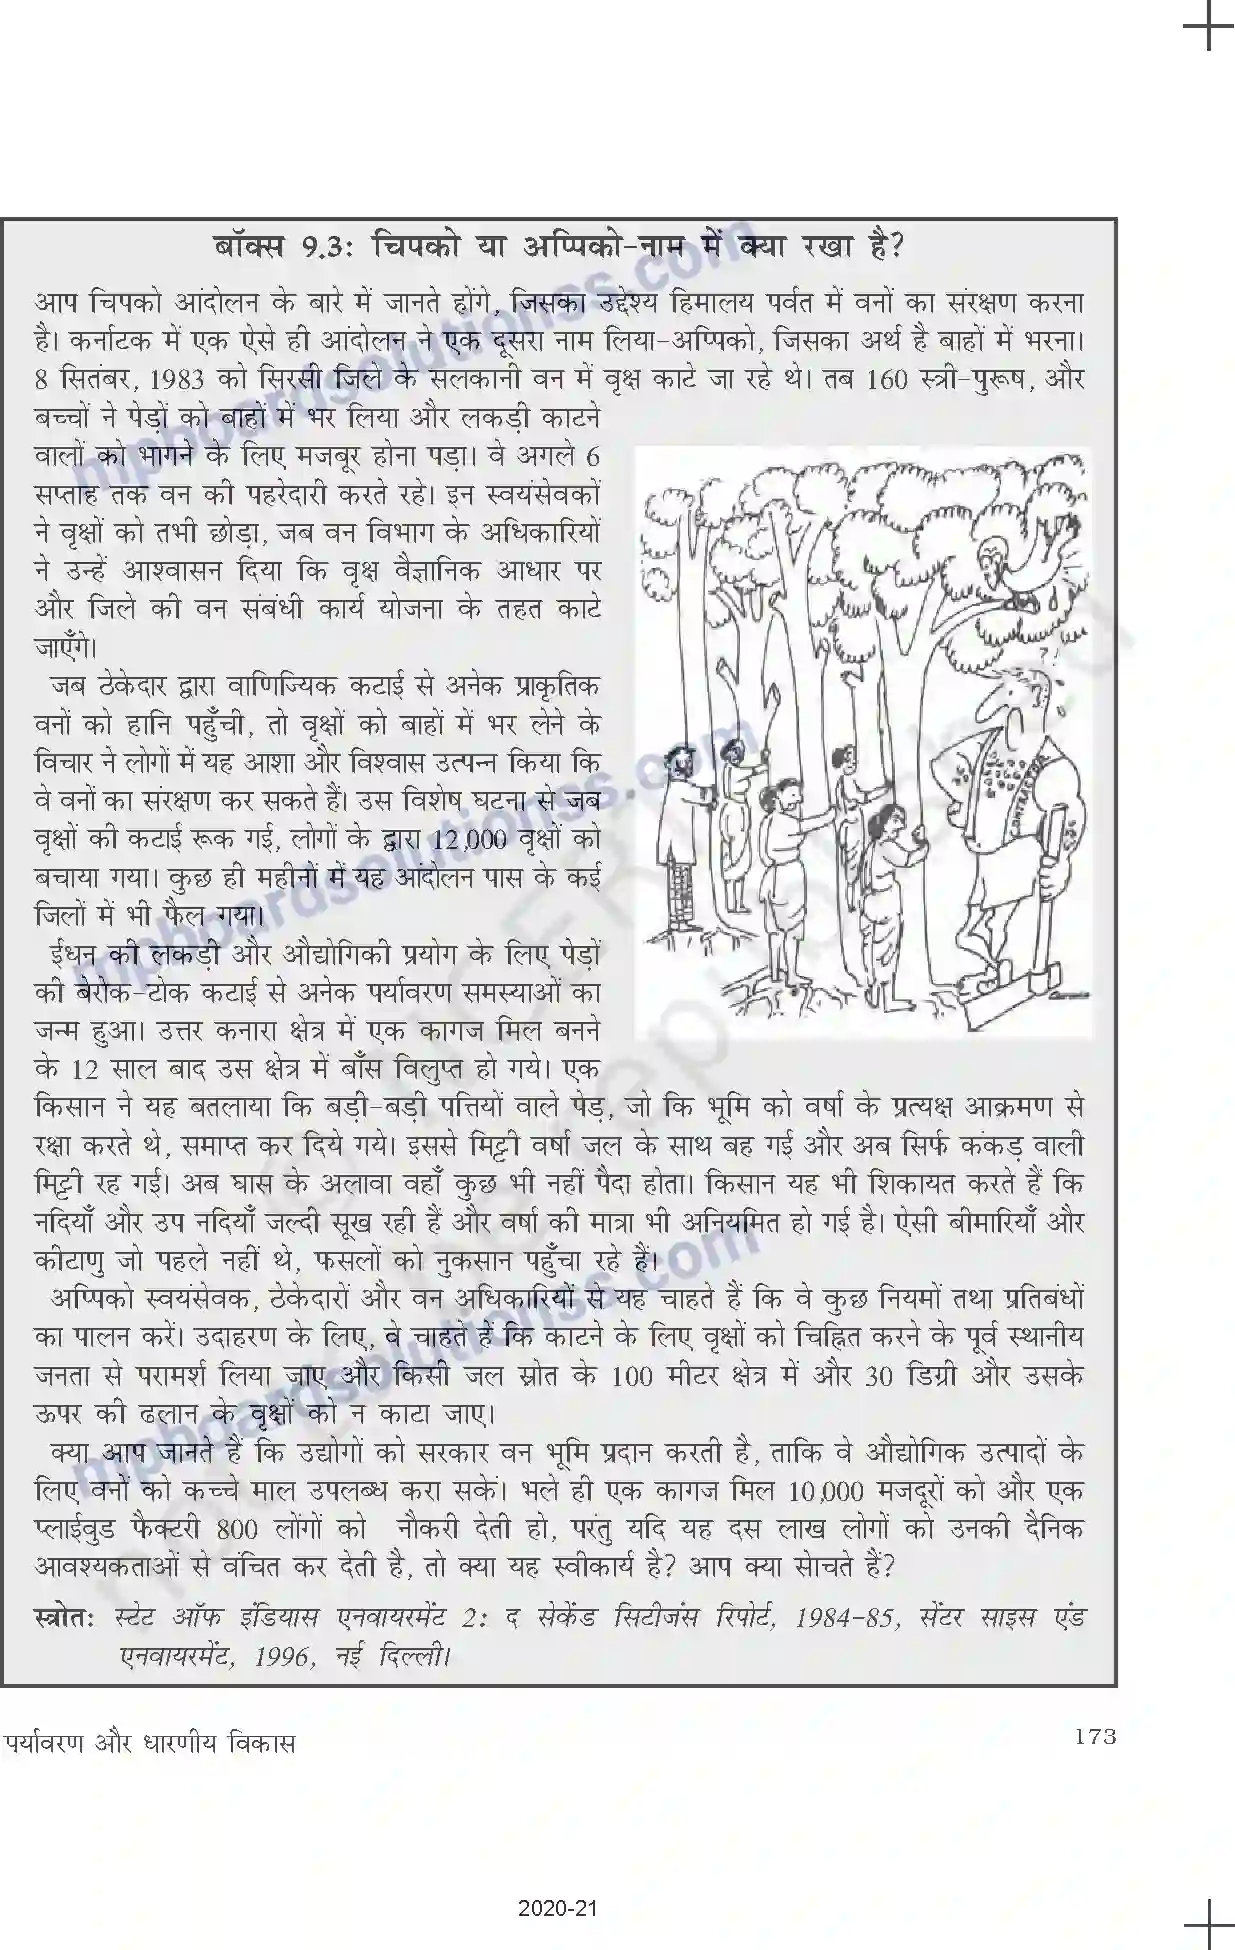 बॉक्स 9.3: चिपको या अप्पिको-नाम में क्या रखा है?
आप चिपको आंदोलन के बारे में जानते होंगे, जिसका उद्देश्य हिमालय पर्वत में वनों का संरक्षण करना
है। कर्नाटक में एक ऐसे ही आंदोलन ने एक दूसरा नाम लिया-अप्पिको, जिसका अर्थ है बाहों में भरना।
8 सितंबर, 1983 को सिरसी जिले के सलकानी वन में वृक्ष काटे जा रहे थे। तब 160 स्त्री-पुरूष, और
बच्चों ने पेड़ों को बाहों में भर लिया और लकड़ी काटने
वालों को भागने के लिए मजबूर होना पड़ा। वे अगले 6
सप्ताह तक वन की पहरेदारी करते रहे। इन स्वयंसेवकों
ने वृक्षों को तभी छोड़ा, जब वन विभाग के अधिकारियों
ने उन्हें आश्वासन दिया कि वृक्ष वैज्ञानिक आधार पर
और जिले की वन संबंधी कार्य योजना के तहत काटे
जाएँगे।
जब ठेकेदार द्वारा वाणिज्यिक कटाई से अनेक प्राकृतिक
वनों को हानि पहुँची, तो वृक्षों को बाहों में भर लेने के
विचार ने लोगों में यह आशा और विश्वास उत्पन्न किया कि
वे वनों का संरक्षण कर सकते हैं। उस विशेष घटना से जब
वृक्षों की कटाई रूक गई, लोगों के द्वारा 12,000 वृक्षों को
बचाया गया। कुछ ही महीनों में यह आंदोलन पास के कई
जिलों में भी फैल गया।
ईधन की लकड़ी और औद्योगिकी प्रयोग के लिए पेड़ों
की बेरोक-टोक कटाई से अनेक पर्यावरण समस्याओं का
जन्म हुआ। उत्तर कनारा क्षेत्र में एक कागज मिल बनने
के 12 साल बाद उस क्षेत्र में बाँस विलुप्त हो गये। एक
किसान ने यह बतलाया कि बड़ी-बड़ी पत्तियों वाले पेड़, जो कि भूमि को वर्षा के प्रत्यक्ष आक्रमण से
रक्षा करते थे, समाप्त कर दिये गये। इससे मिट्टी वर्षा जल के साथ बह गई और अब सिर्फ कंकड़ वाली
मिट्टी रह गई। अब घास के अलावा वहाँ कुछ भी नहीं पैदा होता। किसान यह भी शिकायत करते हैं कि
नदियाँ और उप नदियाँ जल्दी सूख रही हैं और वर्षा की मात्रा भी अनियमित हो गई है। ऐसी बीमारियाँ और
कीटाणु जो पहले नहीं थे, फसलों को नुकसान पहुँचा रहे हैं।
अप्पिको स्वयंसेवक, ठेकेदारों और वन अधिकारियों से यह चाहते हैं कि वे कुछ नियमों तथा प्रतिबंधों
का पालन करें। उदाहरण के लिए, वे चाहते हैं कि काटने के लिए वृक्षों को चिह्नित करने के पूर्व स्थानीय
जनता से परामर्श लिया जाए और किसी जल स्रोत के 100 मीटर क्षेत्र में और 30 डिग्री और उसके
ऊपर की ढलान के वृक्षों को न काटा जाए।
क्या आप जानते हैं कि उद्योगों को सरकार वन भूमि प्रदान करती है, ताकि वे औद्योगिक उत्पादों के
लिए वनों को कच्चे माल उपलब्ध करा सकें। भले ही एक कागज मिल 10,000 मजदूरों को और एक
प्लाईवुड फैक्टरी 800 लोंगों को नौकरी देती हो, परंतु यदि यह दस लाख लोगों को उनकी दैनिक
आवश्यकताओं से वंचित कर देती है, तो क्या यह स्वीकार्य है? आप क्या सोचते हैं?
स्त्रोतः स्टेट ऑफ इंडियास एनवायरमेंट 2: द सेकेंड सिटीजंस रिपोर्ट, 1984-85, सेंटर साइस एंड
एनवायरमेंट, 1996, नई दिल्ली।
CONTRACTOR
पर्यावरण और धारणीय विकास
173
2020-21
mpboardsolutionss.com
mpboardsolutionss.com
mpboardsolutionss.com
© NCERT
not to be republished